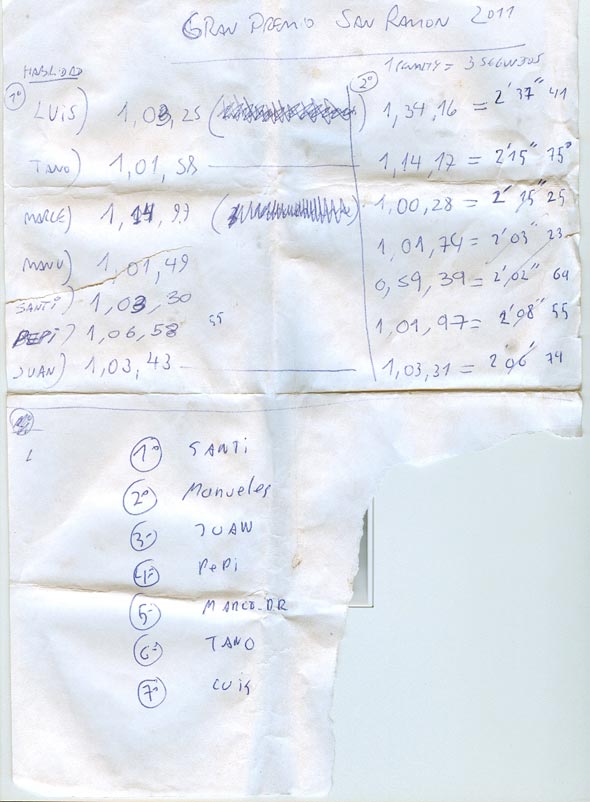 GRAN PREMIO SAN RAMON 2011
HABILIDAD
1 PENALTY = 3 SEGUNDOS
1º 2º
LUIS) 1,03,25 1,34,16 = 2'37" 41
TANO) 1,01,58 1,14,17 = 2'15" 75
MARCE) 1,14,97 1,00,28 = 2'15" 25
MANU) 1,01,49 1,01,74 = 2'03" 23
SANTI) 1,03,30 0,59,39 = 2'02" 69
PEPI) 1,06,58 55 1,01,97 = 2'08" 55
JUAN) 1,03,43 1,03,31 = 2'06" 74
1º SANTI
2º Manueles
3º JUAN
4º PePi
5º MARCO.DR
6º TANO
7º LUIS